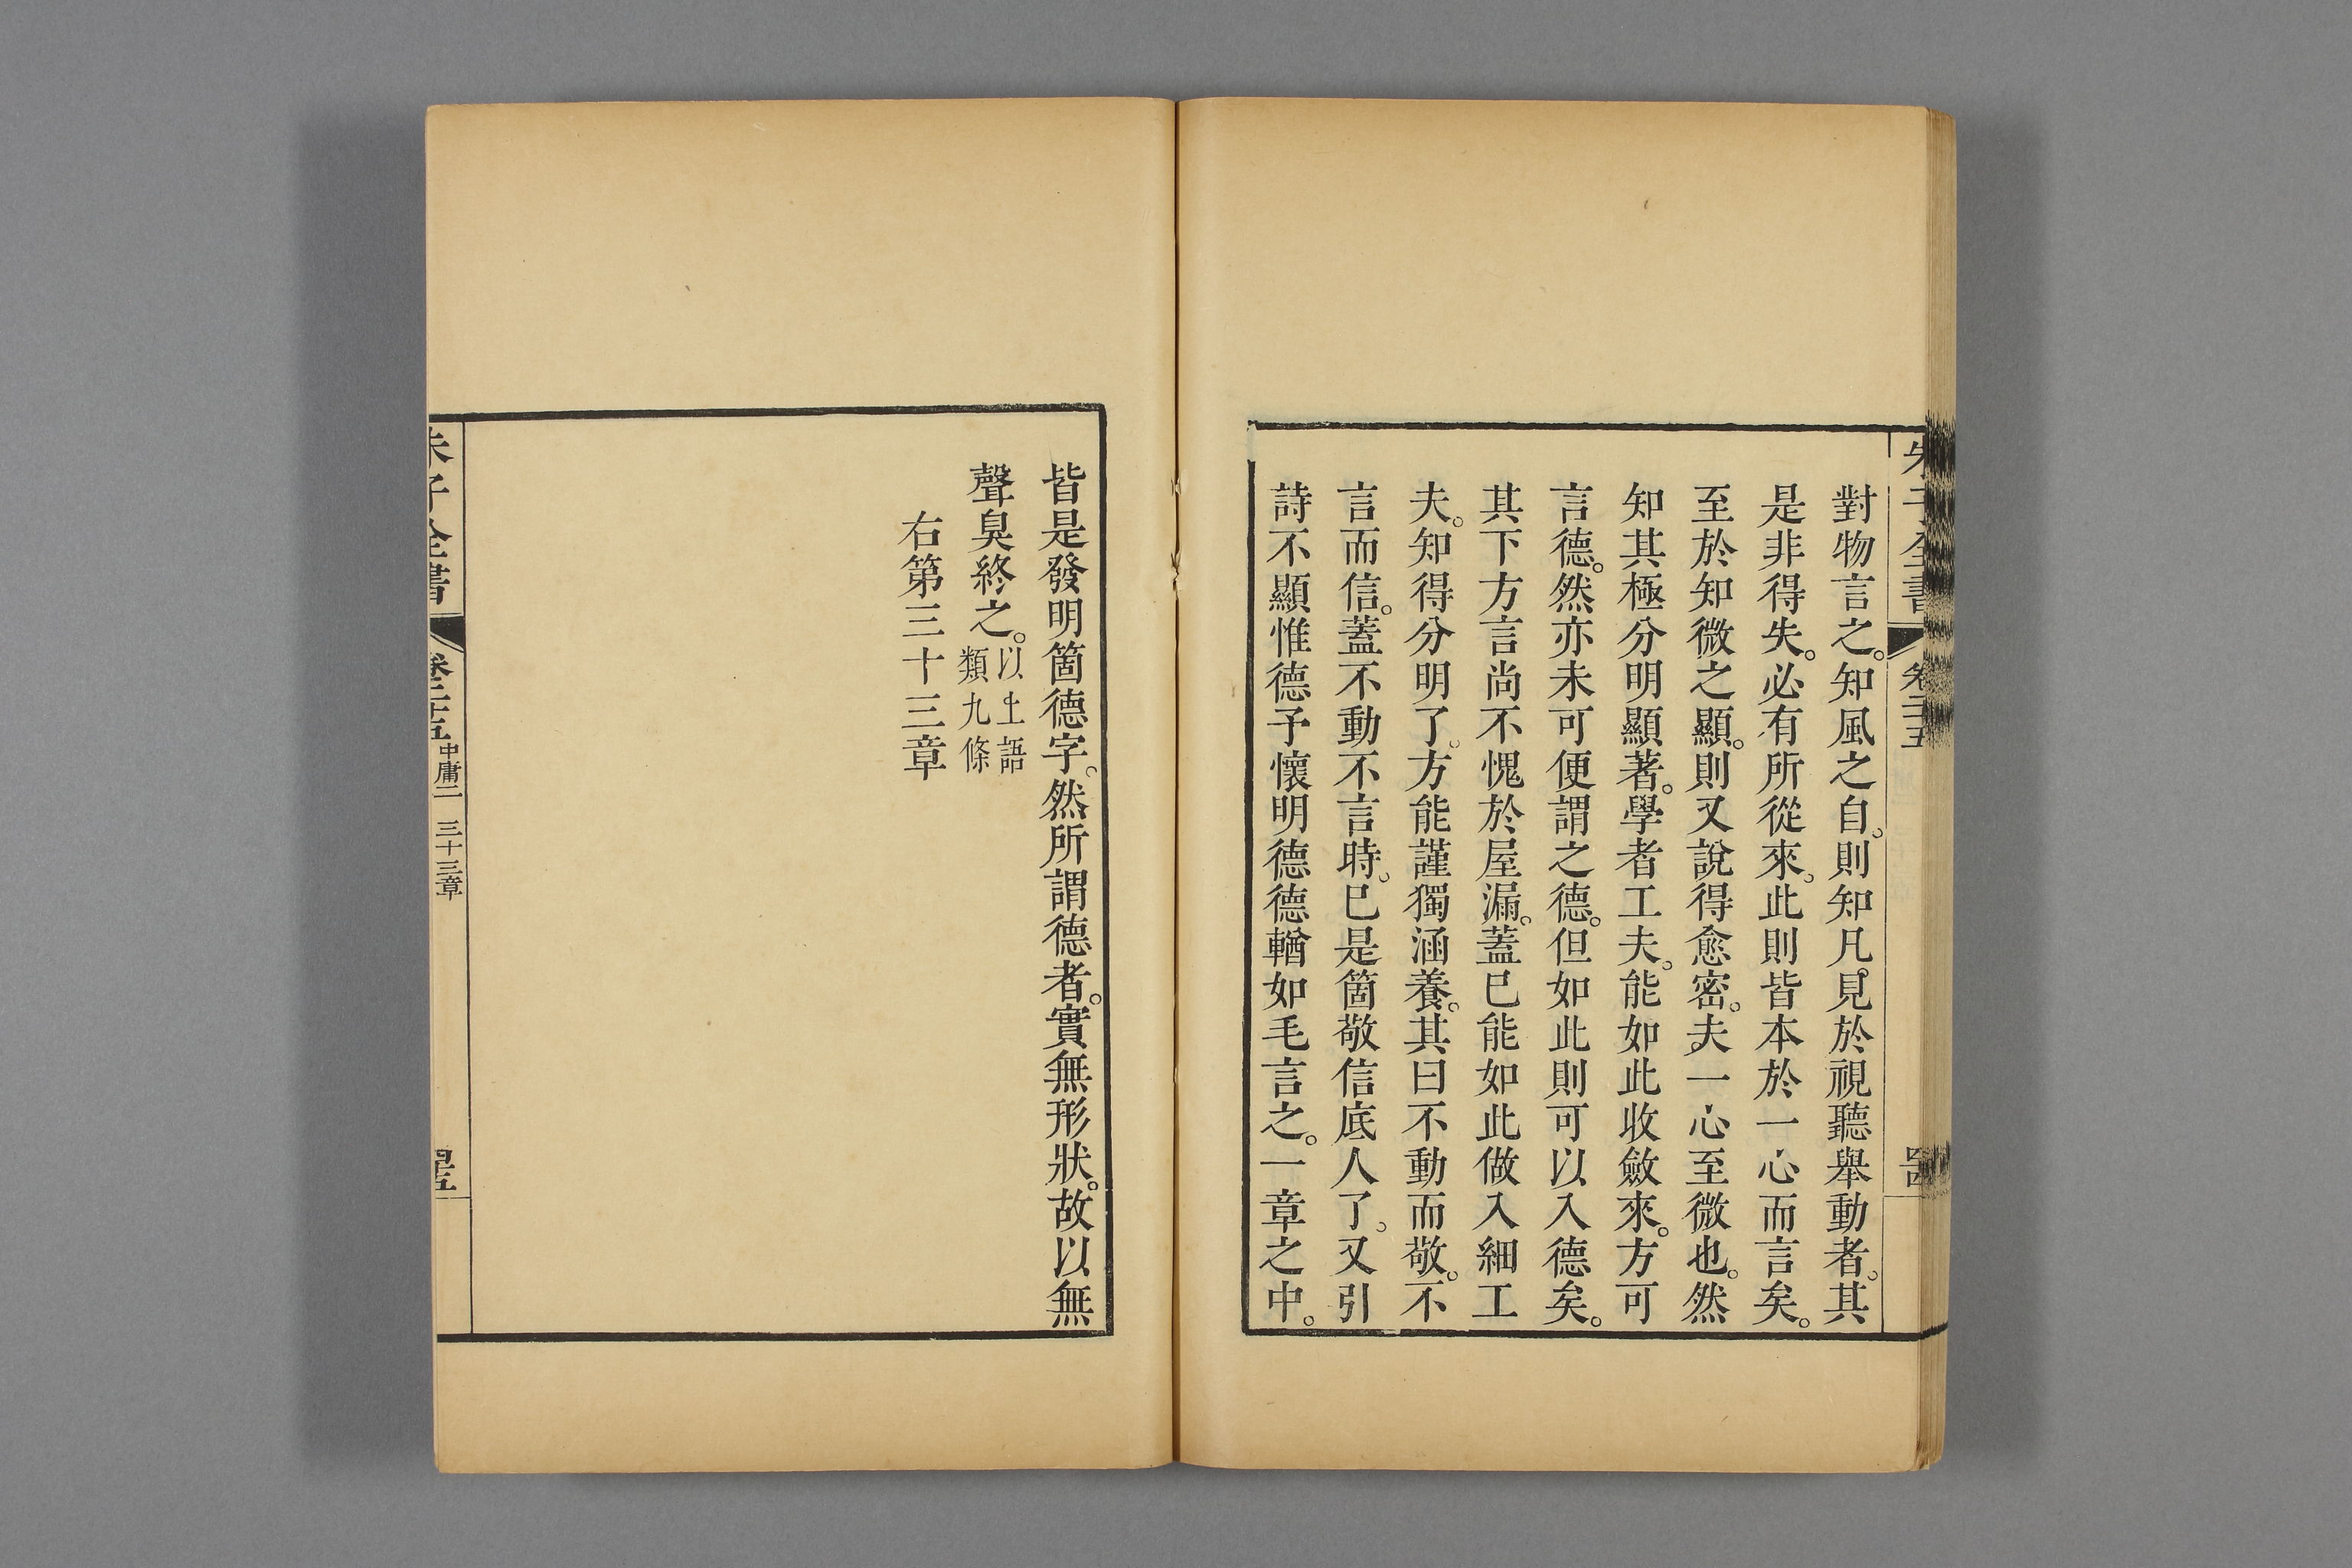 朱子全書 卷二十五
對物言之。知風之自。則知凡見於視聽舉動者。其
是非得失。必有所從來。此則皆本於一心而言矣。
至於知微之顯。則又說得愈密。夫一心至微也。然
知其極分明顯著。學者工夫。能如此收斂來。方可
言德。然亦未可便謂之德。但如此則可以入德矣。
其下方言尚不愧於屋漏。蓋已能如此做入細工
夫。知得分明了。方能謹獨涵養。其曰不動而敬。不
言而信。蓋不動不言時。已是箇敬信底人了。又引
詩不顯惟德予懷明德德輶如毛言之。一章之中。
皆是發明箇德字。然所謂德者。實無形狀。故以無
聲臭終之。以上語
類九條
右第三十三章
朱子全書 卷二十五 中庸二 三十三章